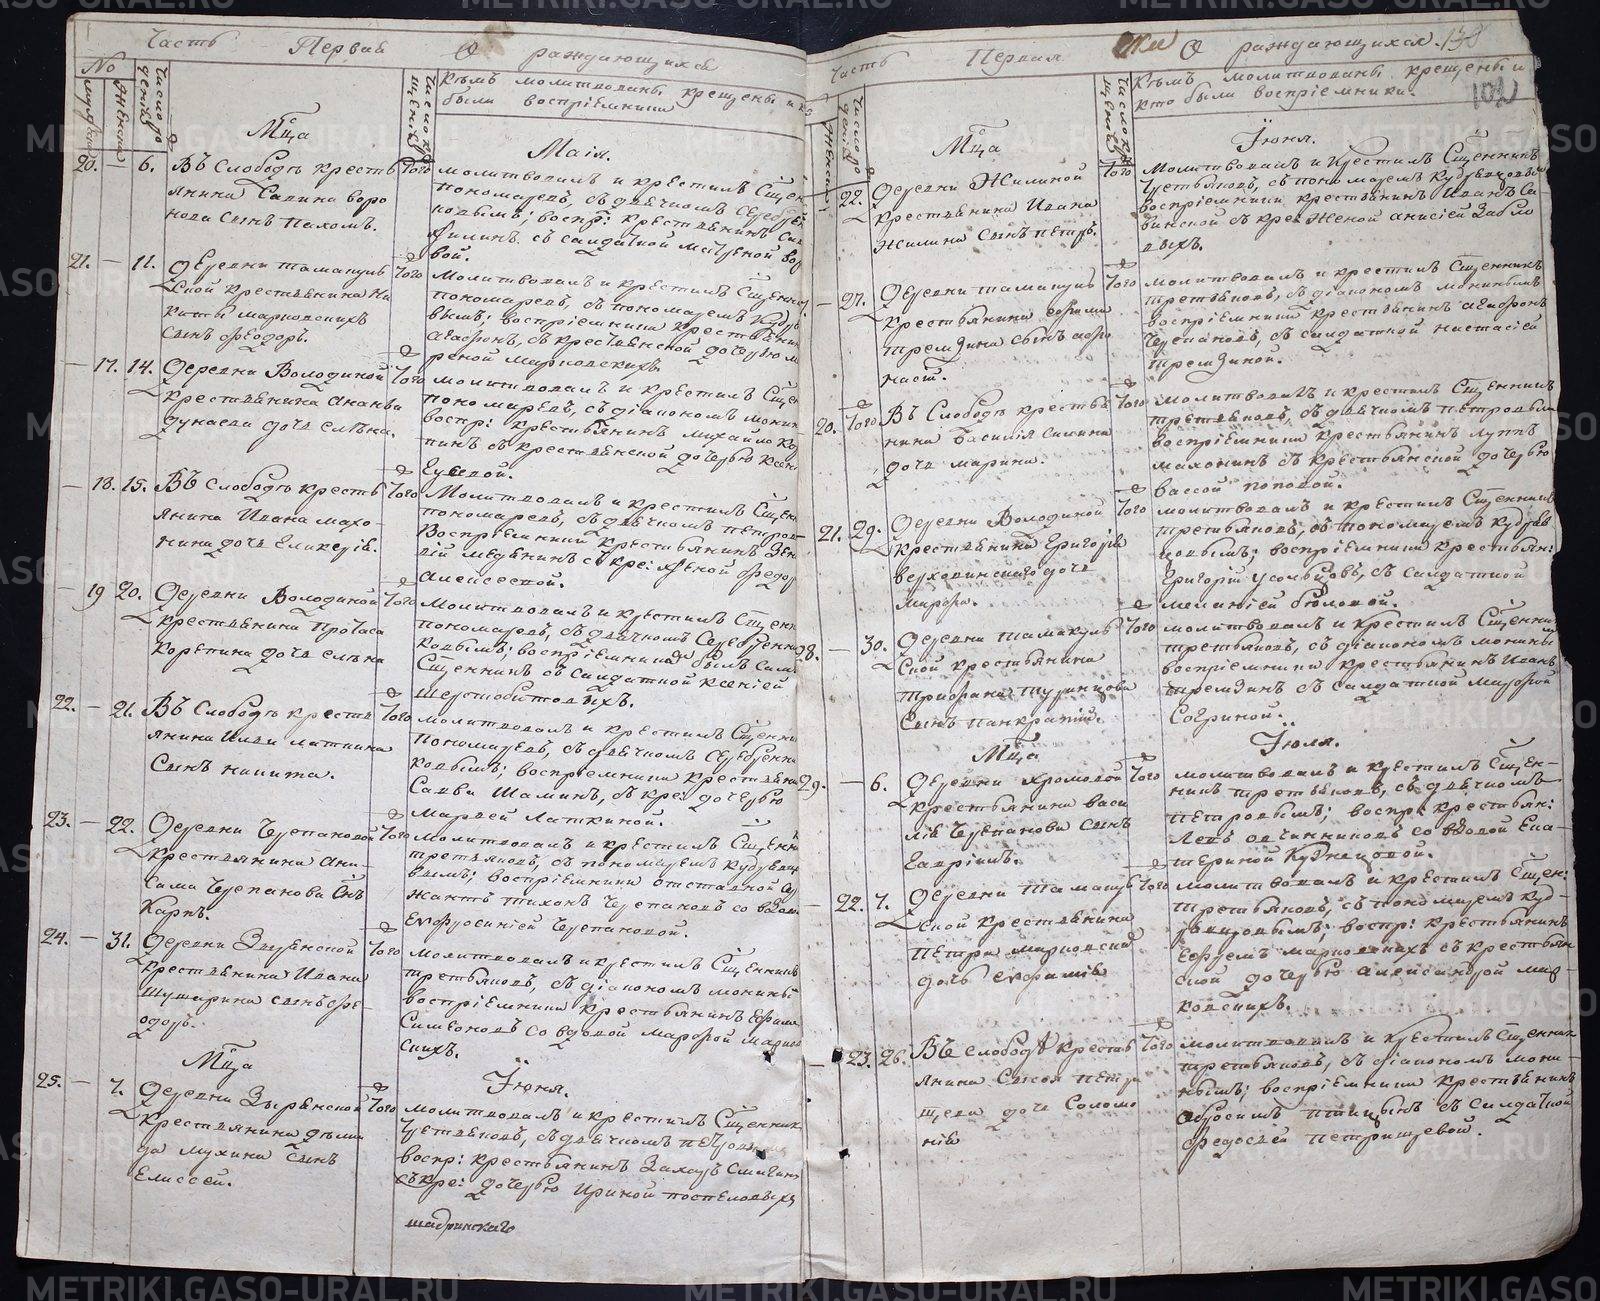 Часть Первая О раждающихся
No
Число рожденія
Число крещенія
Кѣмъ молитвованы, крещены и кто
были воспріемники
Мца Маія.
20. 6. Въ Слободѣ кресть
янина Савина воро
нова сынъ Пахомъ.
Того
молитвовалъ и крестилъ Сщен
пономаревъ, съ дьячкомъ Серебрен
никовымъ; воспр: крестьянинъ
съ салдаткой
вой.
21. 11. Деревни Тамакуль
ской крестьянина Ни
киты марковскихъ
сынъ Феодоръ.
Того
Молитвовалъ и крестилъ Сщенник
пономаревъ, съ пономаремъ Кудряв
вымъ; воспріемники крестьянинъ
Агафонъ, съ крестьянской дочерью
Марковскихъ.
17. 14. Деревни Володиной
крестьянина Ананьи
дунаева дочь елѣна.
Того
молитвовалъ и крестилъ Сщен
пономаревъ, съ діакономъ мокин
воспр: крестьянинъ михайло
съ крестьянской дочерью ксені
Гусевой.
18. 15. Въ Слободѣ кресть
янина Ивана махо
нина дочь Гликерія.
Того
Молитвовалъ и крестилъ Сщен
пономаревъ, съ дьячкомъ петров
Воспріемники крестьянинъ
съ кре: женой федор
Алексеевой.
19 20. Деревни Володиной
крестьянина Протаса
Корепина дочь елѣна
Того
Молитвовалъ и крестилъ Сщен
пономаревъ, съ дьячкомъ Серебренни
ковымъ; воспріемникомъ былъ самъ
Сщенникъ съ салдаткой ксеніей
Шерстобитовыхъ.
22. 21. Въ Слободѣ кресть
янина Ильи латкина
сынъ никита.
Того
молитвовалъ и крестилъ Сщенни
Пономаревъ, съ дьячкомъ Серебренни
ковымъ; воспріемники крестьяни
Савва Шаминъ, съ кре: дочерью
Марьей Латкиной.
23. 22. Деревни Черепановой
крестьянина Ани
сима Черепанова Снъ
Карпъ.
Того
молитвовалъ и крестилъ Сщенни
третьяковъ, съ пономаремъ Кудрявцо
вымъ; воспріемники отставной сер
жантъ тихонъ Черепановъ со вдово
Евфросиніей Черепановой.
24. 31. Деревни Зырянской
крестьянина Ивана
Шушарина сынъ фе
одоръ.
Того
молитвовалъ и крестилъ Сщенникъ
третьяковъ, съ діакономъ мокины
воспріемники крестьянинъ Ефимъ
Симеоновъ со вдовой Марфой Марков
скихъ.
Мца Іюня.
25. 7. Деревни Зырянской
крестьянина
да мухина сынъ
Елиссей.
Того
молитвовалъ и крестилъ Сщенник
третьяковъ, съ дьячкомъ петровым
воспр: крестьянинъ Захаръ
съ кре: дочерью Ириной постѣловыхъ
шадринскаго
Часть Первая О раждающихся. 138
102
Число рожденія
Число крещенія
Кѣмъ молитвованы, крещены и
кто были воспріемники.
Мца Іюня.
22. Деревни Жилиной
крестьянина Ивана
Жилина сынъ петръ.
Того
Молитвовалъ и крестилъ Сщенникъ
третьяковъ, съ пономаремъ Кудрявцовым
воспріемники крестьянинъ Иванъ Са
съ кре: женой анисіей
27. Деревни тамакуль
крестьянина ефима
тремзина сынъ афо
насій.
Того
молитвовалъ и крестилъ Сщенникъ
третьяковъ, съ діакономъ мокинымъ
воспріемники крестьянинъ агафонъ
Черепановъ, съ салдаткой настасіей
тремзиной.
20. Того Въ Слободѣ кресть
янина Василія силина
дочь марина.
Того
молитвовалъ и крестилъ Сщенникъ
третьяковъ, съ дьячкомъ петровым
воспріемники крестьянинъ луппъ
махонинъ съ крестьянской дочерью
вассой поповой.
21. 29. Деревни Володиной
крестьянина Григорія
верходинскаго дочь
Марфа.
Того
молитвовалъ и крестилъ Сщенникъ
третьяковъ, съ пономаремъ кудряв
цовымъ; воспріемники крестьян:
Григорій усольцовъ, съ салдаткой
меланіей бюловой.
28. 30. Деревни тамакуль
ской крестьянина
Трифана туринцова
сынъ панкратій.
Того
молитвовалъ и крестилъ Сщенни
третьяковъ, съ діакономъ мокины
воспріемники крестьянинъ Иванъ
тремзинъ съ салдаткой марфой
Согриной.
Мца Іюля.
29. 6. Деревни Хромовой
крестьянина васи
лія Черепанова сынъ
Гавріилъ.
Того
молитвовалъ и крестилъ Сщен-
никъ третьяковъ, съ дьячкомъ
петровымъ; воспр: крестьян:
Левъ овчинниковъ со вдовой Ека-
териной Кузнецовой.
22. 7. Деревни Тамакуль
ской крестьянина
Петра марковских
дочь евфимія
Того
молитвовалъ и крестилъ Сщен:
третьяковъ, съ пономаремъ Куд-
рявцовымъ; воспр: крестьянинъ
Ефремъ марковскихъ съ крестьян
ской дочерью александрой мар-
ковскихъ.
23. 26. Въ слободѣ кресть
янина Сысоя петри
щева дочь Соломо
нія
Того
молитвовалъ и крестилъ Сщенник
третьяковъ, съ діакономъ моки-
нымъ; воспріемники крестьянинъ
Абросимъ птицынъ съ салдаткой
федосьей петрищевой.
METRIKI.GASO-URAL.RU